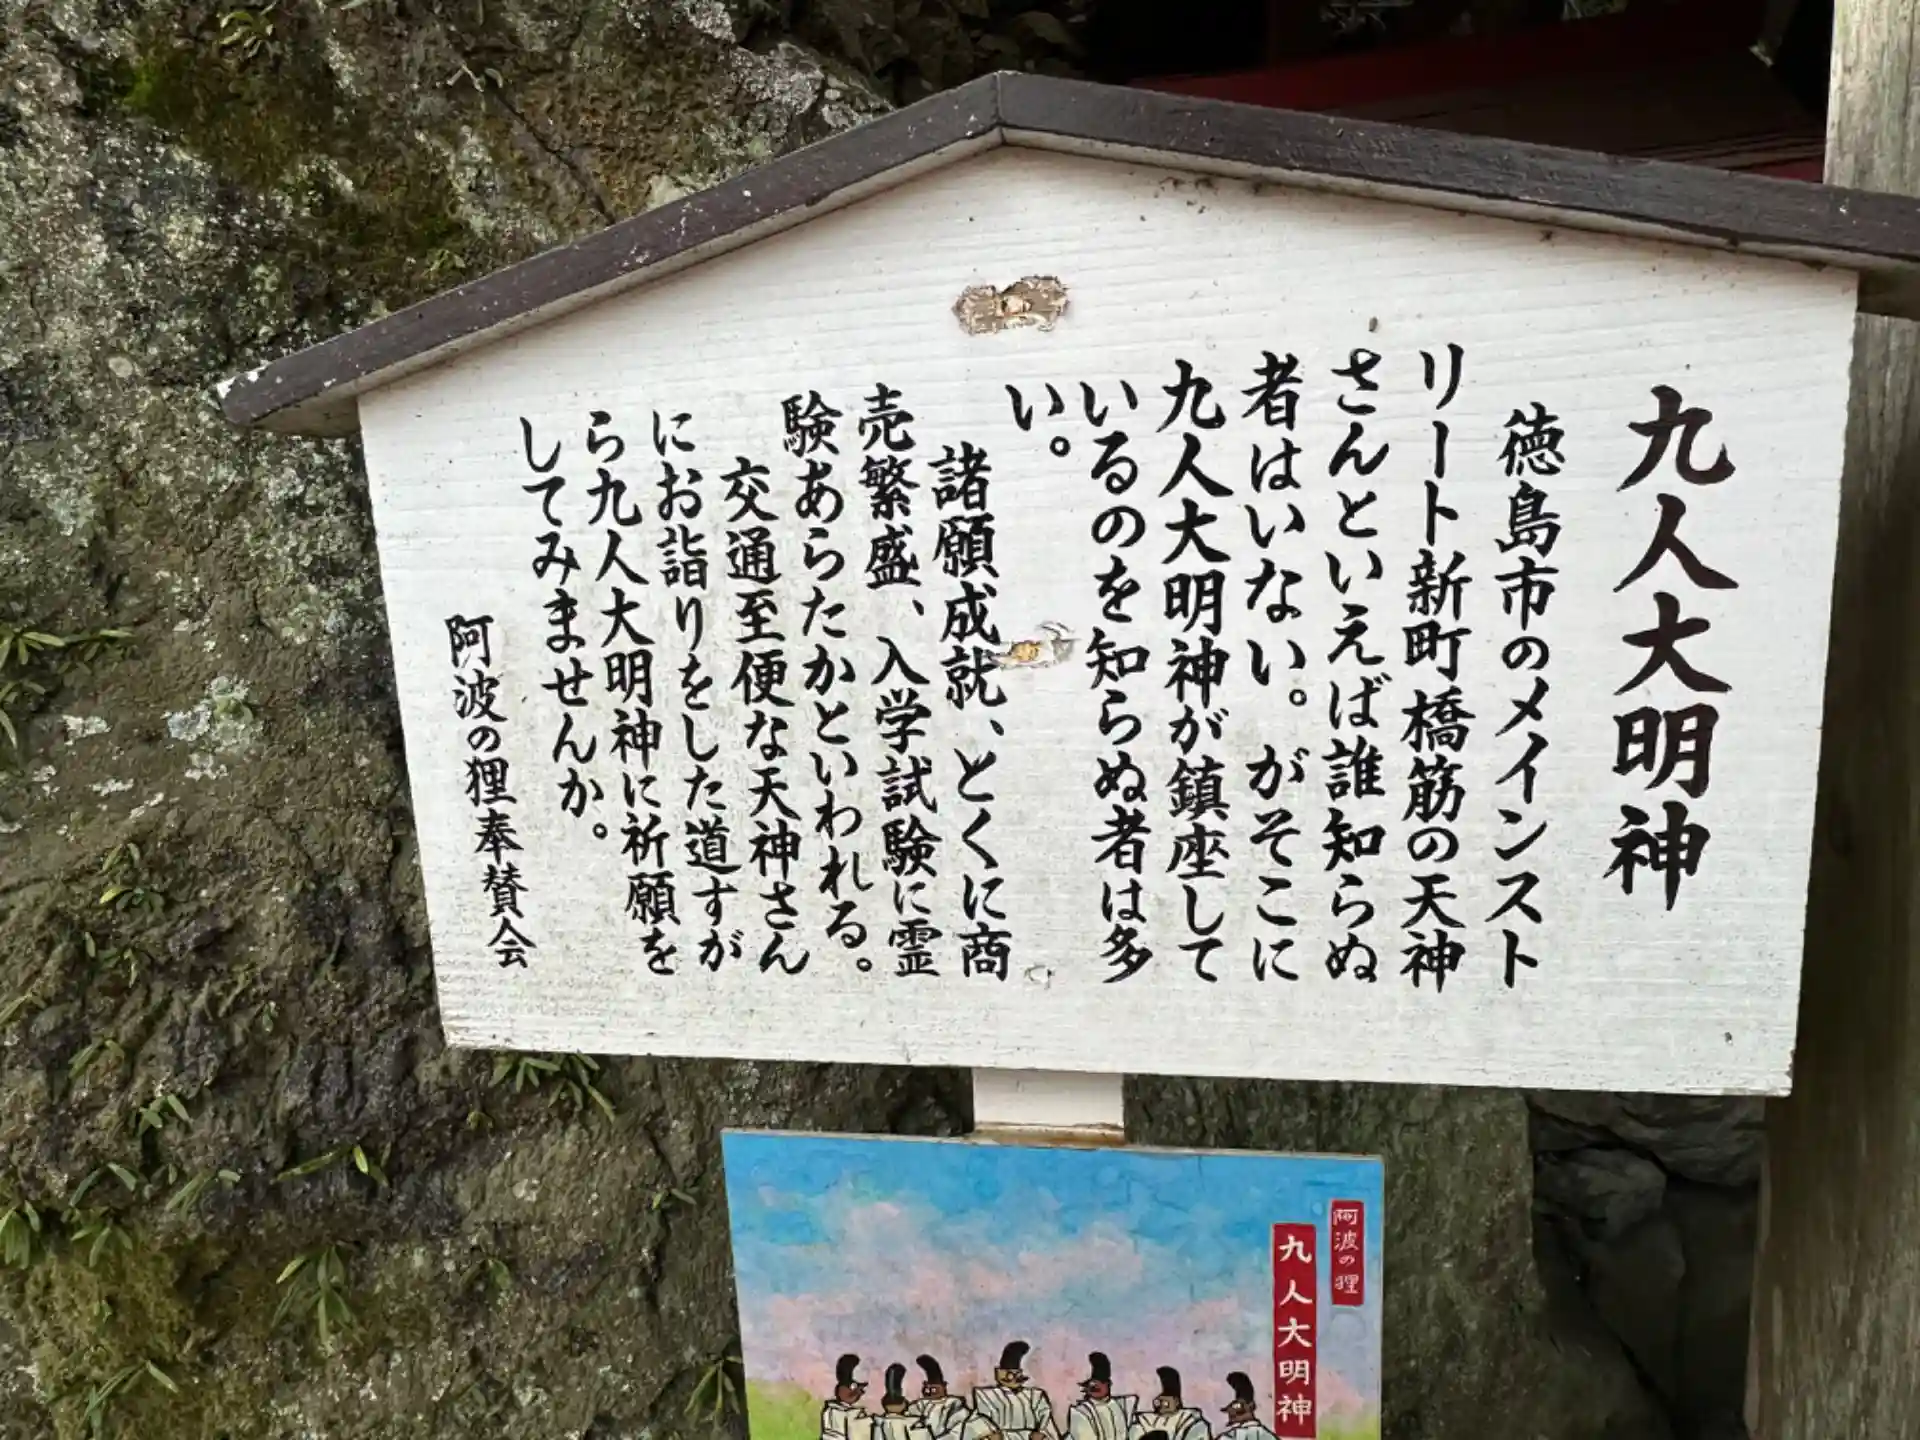 九人大明神
徳島市のメインスト
リート新町橋筋の天神
さんといえば誰知らぬ
者はいない。がそこに
九人大明神が鎮座して
いるのを知らぬ者は多
い。
諸願成就、とくに商
売繁盛、入学試験に霊
験あらたかといわれる。
交通至便な天神さん
にお詣りをした道すが
ら九人大明神に祈願を
してみませんか。
阿波の狸奉賛会
阿波の狸
九人大明神